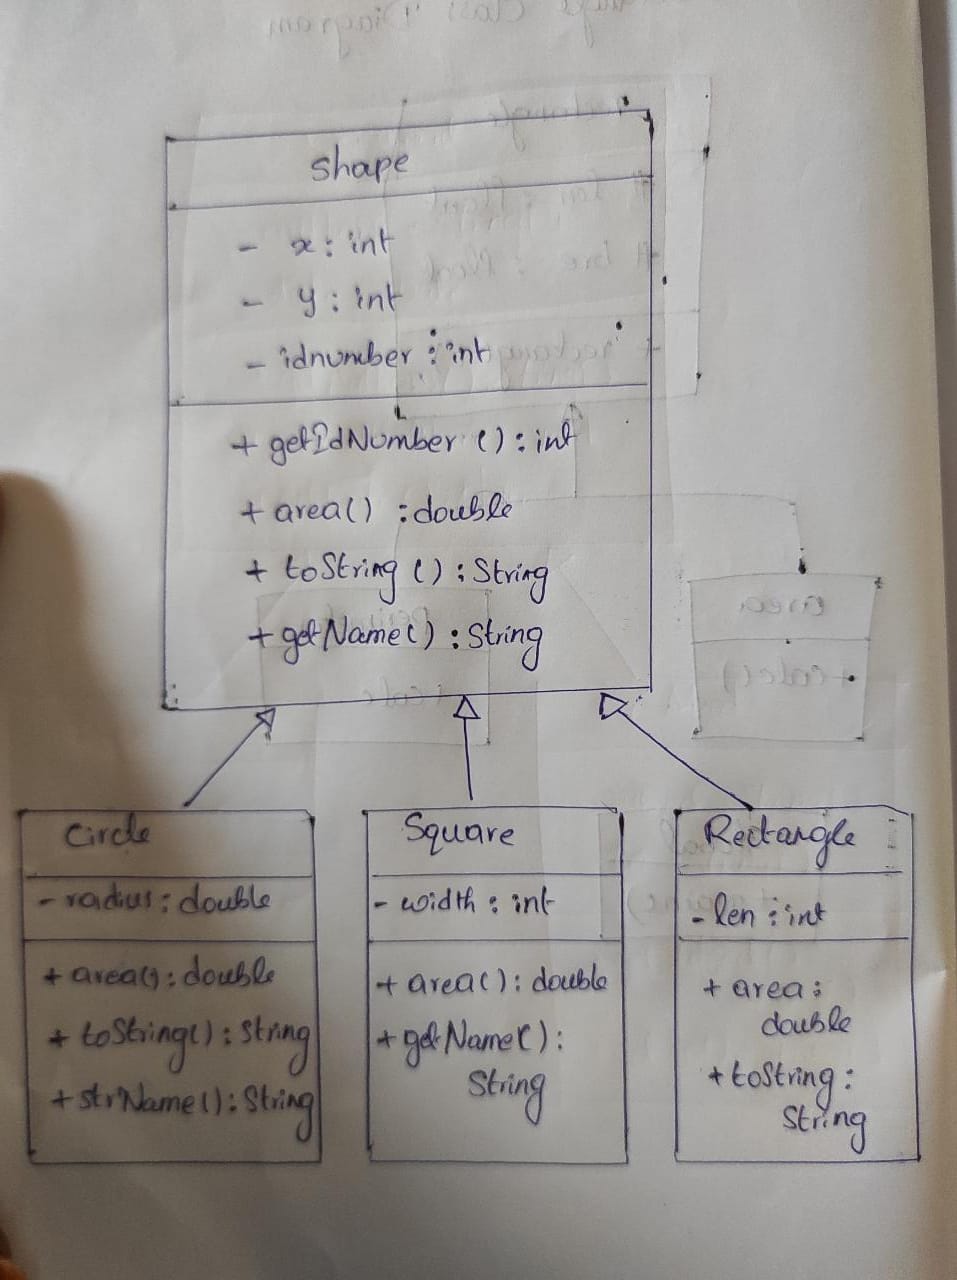 Shape
- x : int
- y : int
- idnumber : int
+ getIdNumber () : int
+ area() : double
+ toString () : String
+ getName() : String
Circle
- radius : double
+ area() : double
+ toString() : String
+ strName() : String
Square
- width : int
+ area() : double
+ getName() :
String
Rectangle
- len : int
+ area :
double
+ toString :
String